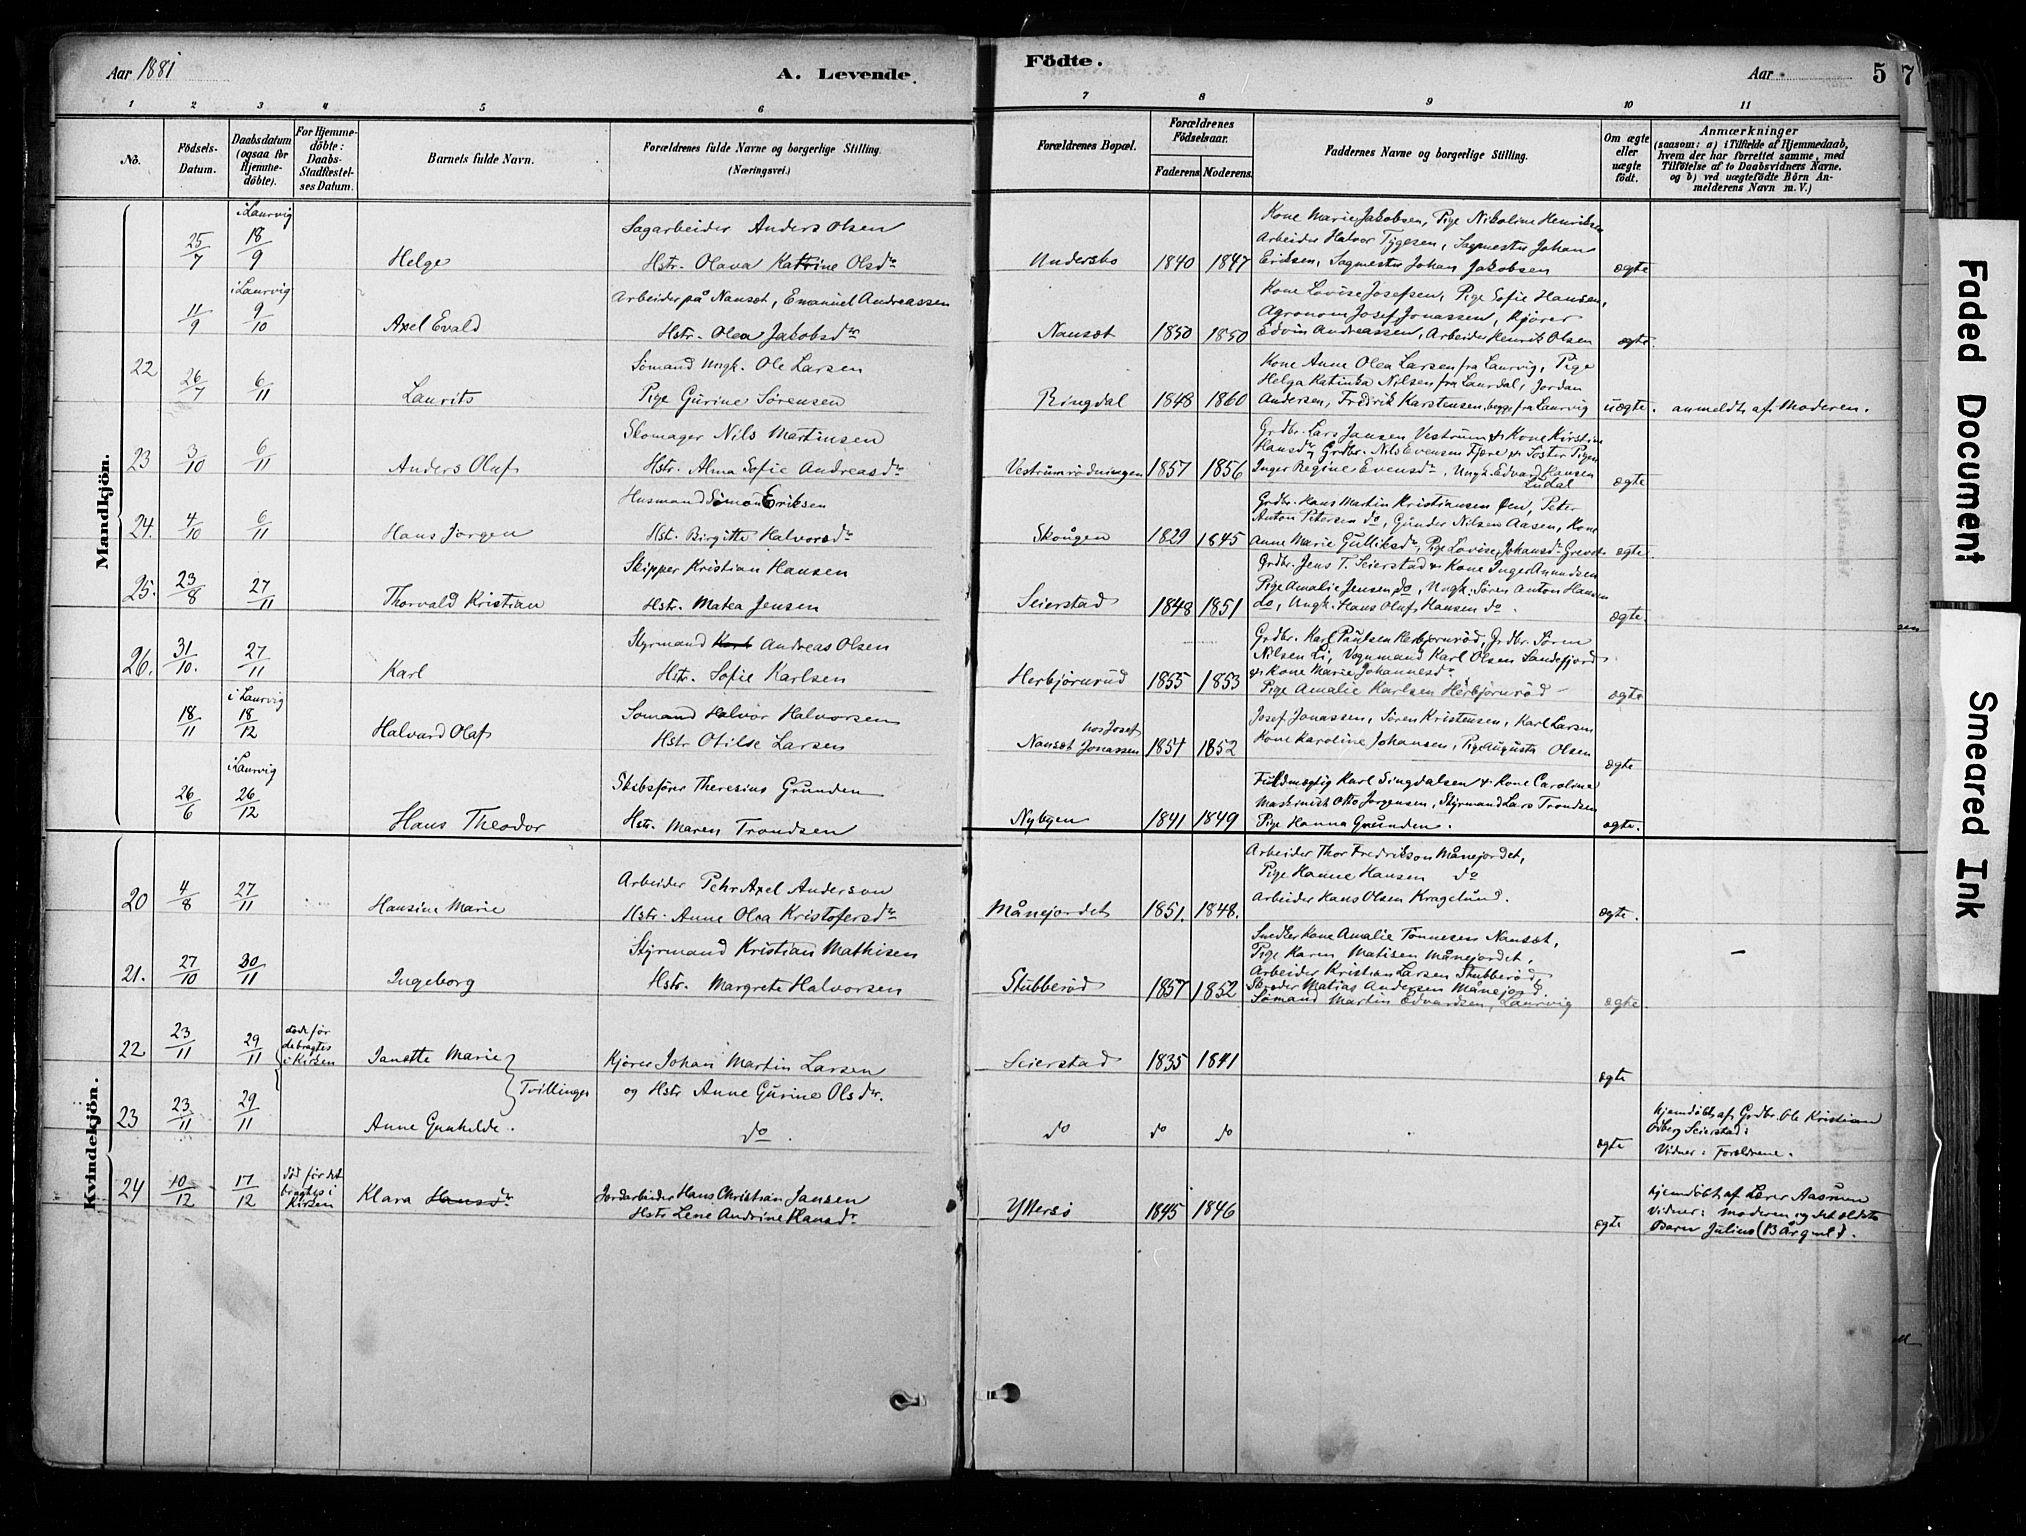 Aar 1881
A. Levende
Födte.
Aar
5
7
1 2 3 4 5 6 7 8 9 10 11
No.
Födsels-Datum.
Daabsdatum (ogsaa for Hjemme-döbte).
For Hjemme-döbte: Daabs-Stadfæstel-ses Datum.
Barnets fulde Navn.
Forældrenes fulde Navne og borgerlige Stilling. (Næringsvei.)
Forældrenes Bopæl.
Forældrenes Födselsaar.
Faderens Moderens
Faddernes Navne og borgerlige Stilling.
Om ægte eller uægte födt.
Anmærkninger
(saasom: a) i Tilfælde af Hjemmedaab,
hvem der har forrettet samme, med
Tilföielse af to Daabsvidners Navne,
og b) ved uægtefödte Börn An-
melderens Navn m. V.)
Mandkjön.
25/7 i Laurvig 18/9 Helge
Sagarbeider Anders Olsen
Hstr. Olava Katrine Olsdr
Undersbo 1840 1847
Kone Marie Jakobsen, Pige Nikoline Henriksen
Arbeider Halvor Tygesen, Sagmester Johan
Eriksen, Sagmester Johan Jakobsen
ægte
11/9 i Laurvig 9/10 Axel Evald
Arbeider på Nanset, Emanuel Andreassen
Hstr. Olea Jakobsdr
Nanset 1850 1850
Kone Lovise Josefsen, Pige Sofie Hansen,
Agronom Josef Jonassen, Kjører
Edvin Andreassen, Arbeider Henrik Olsen
ægte.
22 26/7 6/11 Laurits
Sømand Ungk. Ole Larsen
Pige Gurine Sørensen
Ringdal 1848 1860
Kone Anne Olea Larsen fra Laurvig, Pige
Helga Katinka Nilsen fra Laurdal, Jordan
Andersen, Fredrik Karstensen, begge fra Laurvig
uægte. anmeldt af Moderen.
23 3/10 6/11 Anders Oluf
Skomager Nils Martinsen
Hstr. Alma Sofie Andreasdr
Vestrumrødningen 1857 1856
Grdbr. Lars Jansen Vestrum & Kone Kirstine
Hansdr, Grdbr. Nils Evensen Fjære & Søster Pigen
Inger Regine Evensdr, Ungk. Edvard Hansen
Ludal
ægte
24. 4/10 6/11 Hans Jørgen
Husmand Simon Eriksen
Hst. Birgitte Halvorsdr
Skougen 1829 1845
Grdbr. Hans Martin Kristiansen Øen, Peter
Anton Petersen do, Gunder Nilsen Aasen, Kone
Anne Marie Gulliksdr, Pige Lovise Johansdr
ægte
25. 23/8 27/11 Thorvald Kristian
Skipper Kristian Hansen
Hstr. Matea Jensen
Seierstad 1848 1851
Grdbr. Jens T. Seierstad & Kone Inger Amundsen
Pige Amalie Jensen do, Ungk. Søren Anton Hansen
do, Ungk. Hans Oluf Hansen do.
ægte
26. 31/10. 27/11 Karl
Styrmand Karl Andreas Olsen
Hstr. Sofie Karlsen
Herbjørnrud 1855 1853
Grdbr. Karl Paulsen Herbjørnrød, Grdbr. Søren
Nilsen Li, Vognmand Karl Olsen Sandefjord
& Kone Marie Johannesdr
Pige Amalie Karlsen Herbjørnrød
ægte
18/11 i Laurvig 18/12 Halvard Olaf
Sømand Halvor Halvorsen
Hstr Otilde Larsen
hos Josef
Nanset Jonassen 1854 1852
Josef Jonassen, Søren Kristensen, Karl Larsen
Kone Karoline Johansen, Pige Augusta Olsen
ægte
26/6 i Laurvig 26/12 Hans Theodor
Skibsfører Theresius Grunden
Hstr. Maren Trondsen
Nybyen 1841 1849
Fuldmægtig Karl Lingdalsen & Kone Caroline
Maskinist Otto Jørgensen, Styrmand Lars Trondsen
Pige Hanna Grunden.
ægte.
Kvindekjön.
20 4/8 27/11 Hansine Marie
Arbeider Pehr Axel Anderson
Hstr. Anne Olea Kristofersdr
Månejordet 1851. 1848.
Arbeider Thor Fredrikson Månejordet,
Pige Hanne Hansen do
Arbeider Hans Olsen Kragelund.
ægte.
21. 27/10 30/11 Ingeborg
Styrmand Kristian Mathisen
Hstr. Margrete Halvorsen
Stubberød 1857 1852
Snedker Kone Amalie Tønnesen Nanset,
Pige Karen Matisen Månejordet,
Arbeider Kristian Larsen Stubberød,
Skræder Matias Andersen Månejord
Sømand Martin Edvardsen, Laurvig
ægte
22 23/11 29/11 døde før de bragtes i Kirken Janette Marie
Kjører Johan Martin Larsen
Seierstad 1835 1841
ægte
Tvillinger
og Hstr. Anne Gurine Olsdr.
23 23/11 29/11 Anne Gunhilde.
do.
do do do
ægte
hjemdøbt af Grdbr. Ole Kristian
Odberg Seierstad:
Vidner: Forældrene.
24 10/12 17/12 død før det bragtes i Kirken Klara Hansdr
Jordarbeider Hans Christian Jansen
Hstr Lene Andrine Hansdr
Yttersø 1845 1846
ægte
hjemdøbt af Lærer Aasrum
Vidner: Moderen og det ældste
Barn Julius (13 År gml).
Faded Document
Smeared Ink